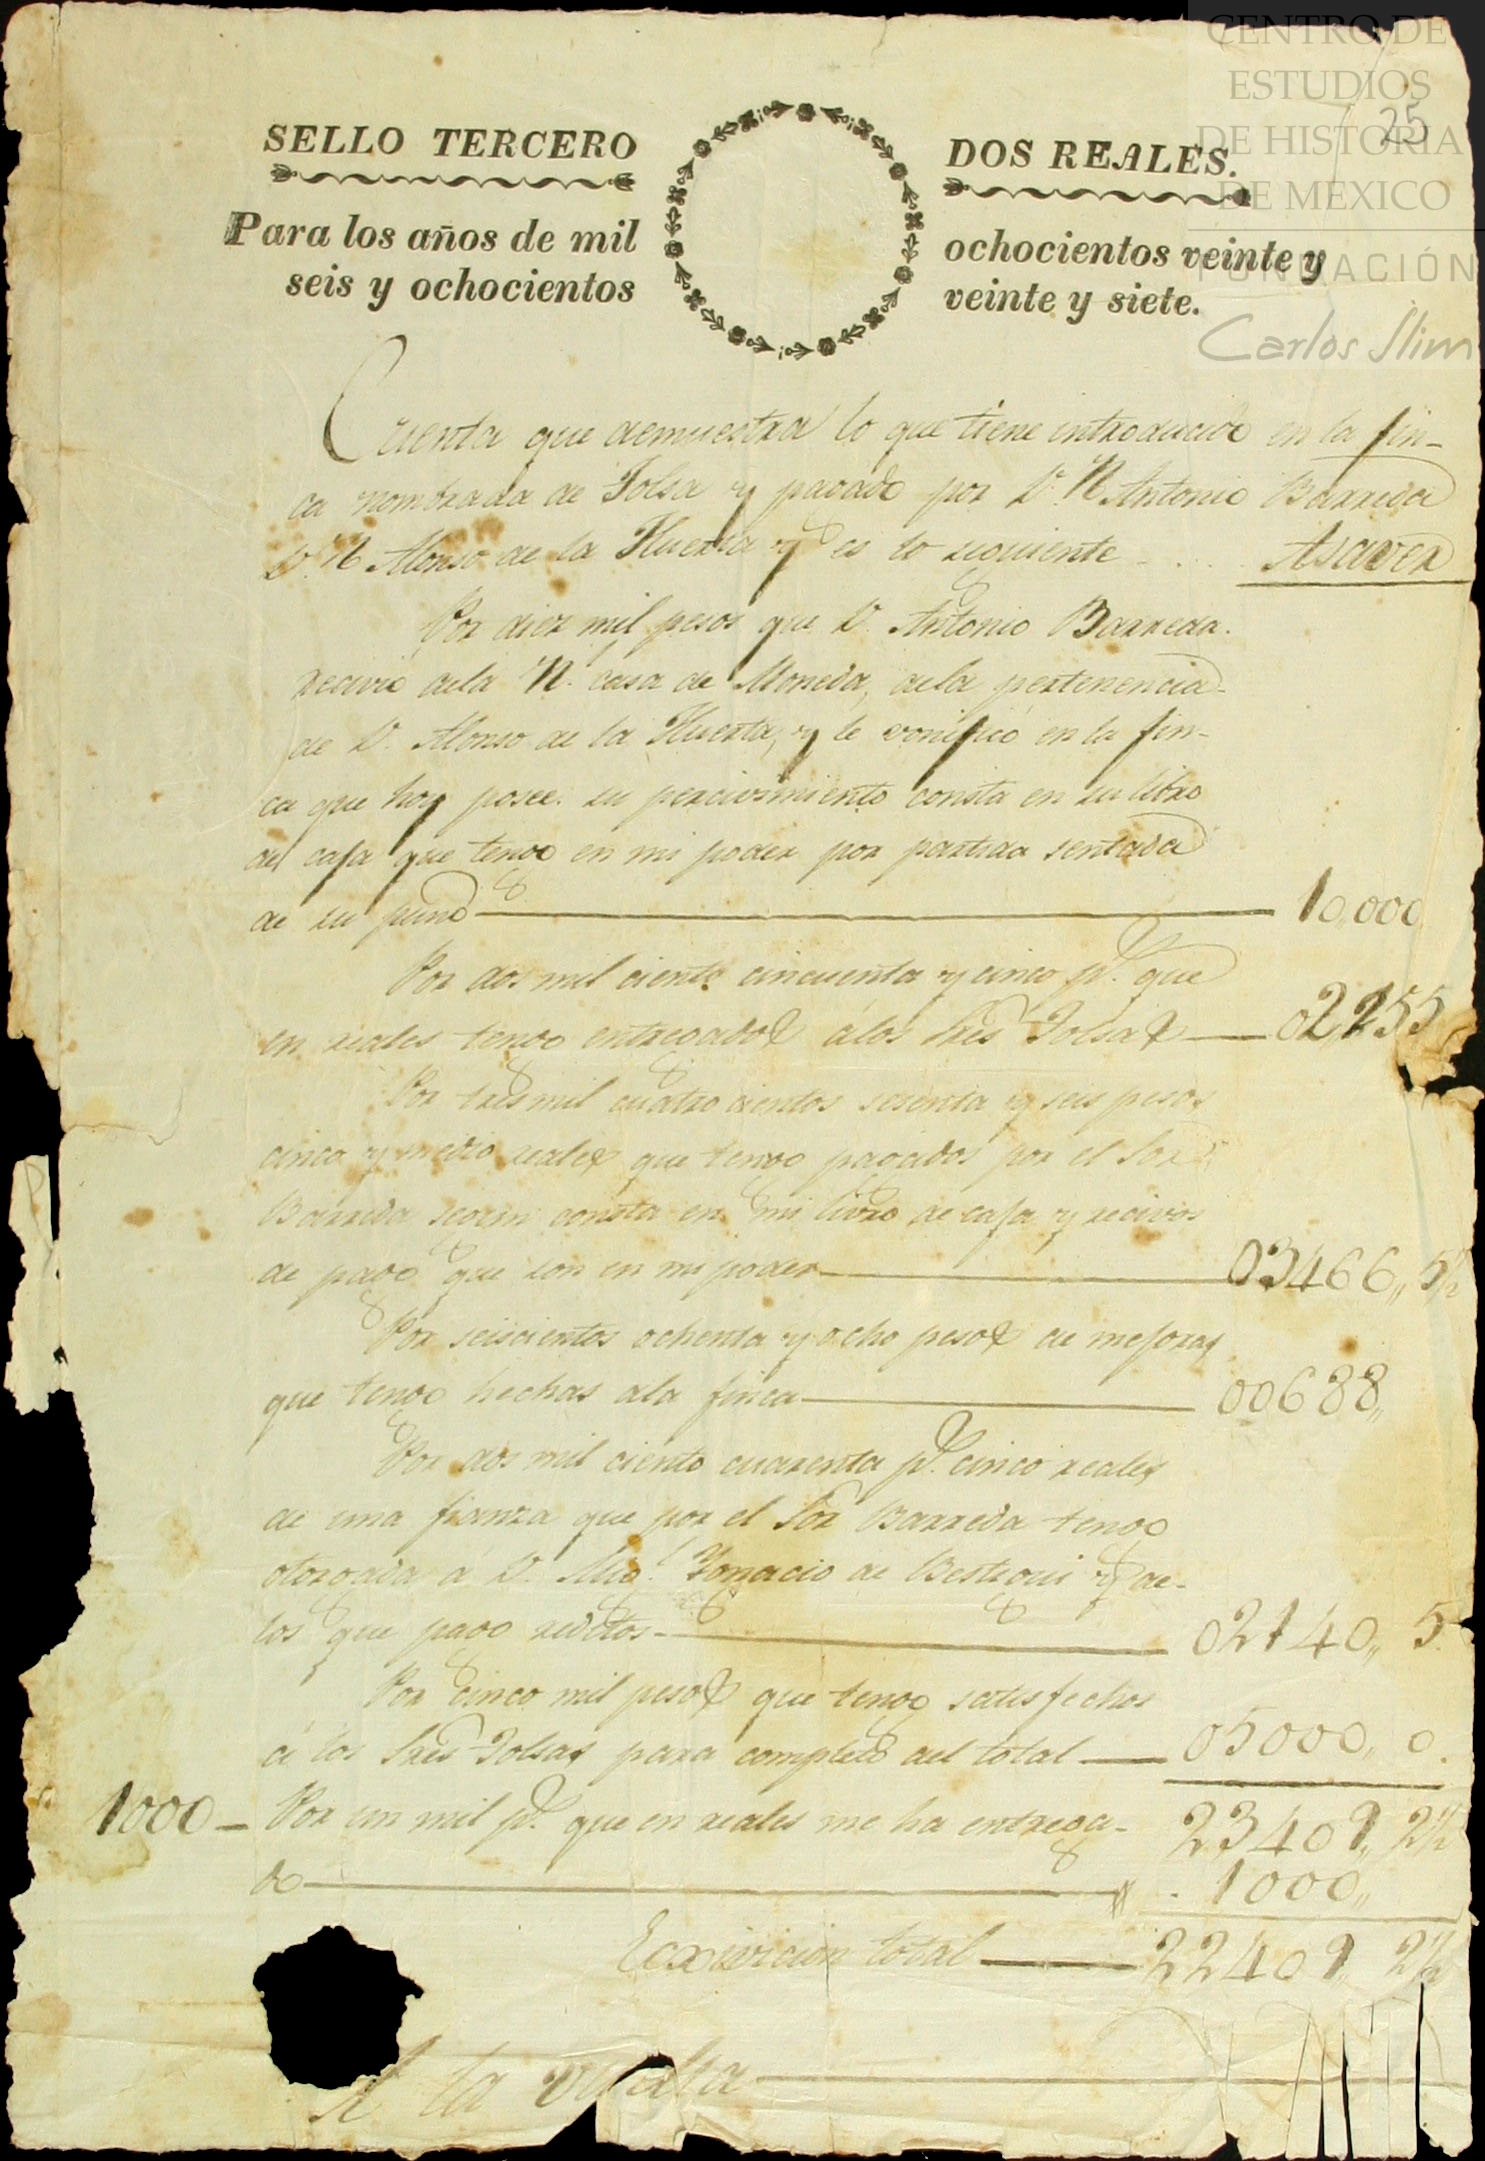 CENTRO DE
ESTUDIOS
DE HISTORIA
DE MEXICO
FUNDACIÓN
Carlos Slim
25
SELLO TERCERO
DOS REALES.
Para los años de mil
ochocientos veinte y
seis y ochocientos
veinte y siete.
Cuenta que demuestra lo que tiene introducido en la fin-
ca nombrada de Tolsa y pagado por Dn. Antonio Barreda
Dn. Alonso de la Huerta y es lo siguiente - . . . Asaver
Por diez mil pesos que Dn. Antonio Barreda.
recivió dela N. casa de Moneda, dela pertenencia
de Dn. Alonso de la Huerta, y le vonificó en la fin-
ca que hoy posee. su percivimiento consta en su libro
de caja que tengo en mi poder por partida sentada
de su puño 10,000
Por dos mil ciento cincuenta y cinco ps. que
en reales tengo entregados álos Sres Tolsas 02,155
Por tres mil cuatro cientos sesenta y seis pesos
cinco y medio reales que tengo pagados por el Sor
Barreda segun consta en mi livro de caja y recivos
de pago que son en mi poder 03466,, 5½
Por seiscientos ochenta y ocho pesos de mejoras
que tengo hechas ala finca 00688,,
Por dos mil ciento cuarenta ps. cinco reales
de una fianza que por el Sor Barreda tengo
otorgada á Dn. Migl. Ygnacio de Bestegui y de-
los que pago reditos 02140,, 5.
Por cinco mil pesos que tengo satisfechos
á los Sres Tolsas para completo del total 05000,, 0.
1000 - Por un mil ps. que en reales me ha entrega- 23409,, 2½
do . 1000,,
Ecxivicion total 22409,, 2½
A la vuelta